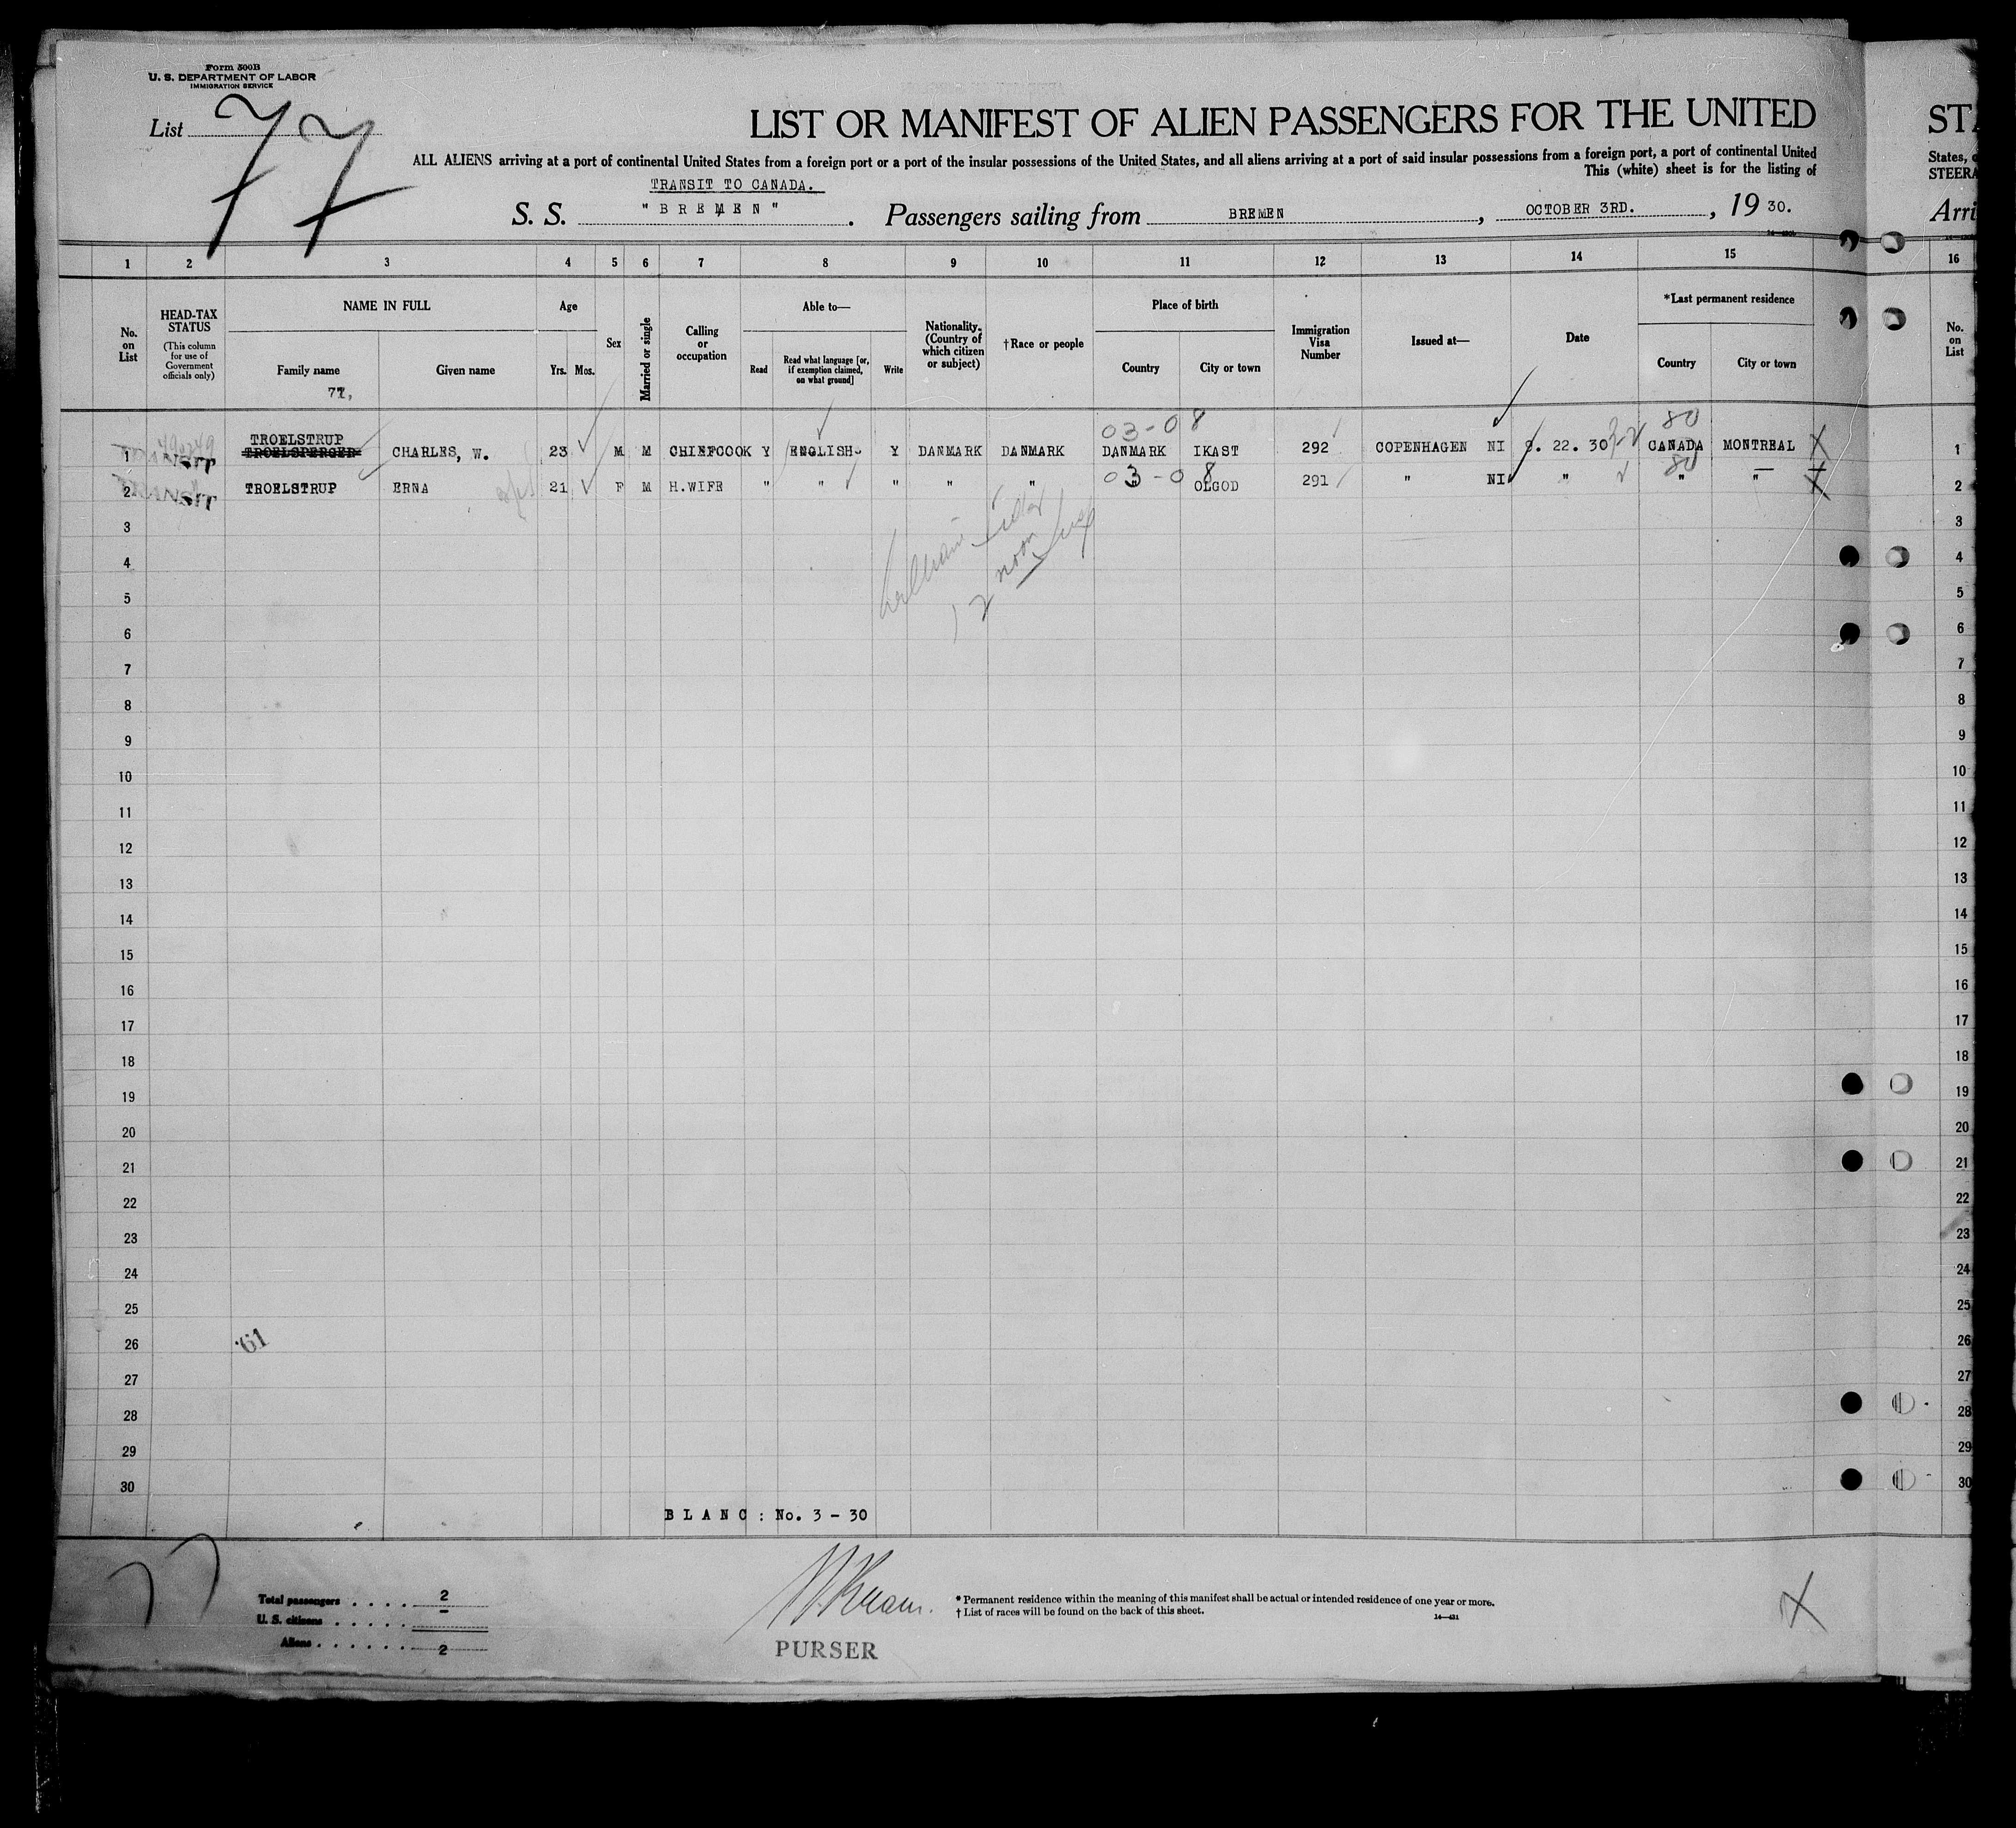 Form 500B
U. S. DEPARTMENT OF LABOR
IMMIGRATION SERVICE
List 77
LIST OR MANIFEST OF ALIEN PASSENGERS FOR THE UNITED
ALL ALIENS arriving at a port of continental United States from a foreign port or a port of the insular possessions of the United States, and all aliens arriving at a port of said insular possessions from a foreign port, a port of continental United
This (white) sheet is for the listing of
TRANSIT TO CANADA.
S. S. "BREMEN". Passengers sailing from BREMEN, OCTOBER 3RD., 19 30.
States,
STEERA
Arri
1 2 3 4 5 6 7 8 9 10 11 12 13 14 15 16
No. on List
HEAD-TAX STATUS
(This column for use of Government officials only)
NAME IN FULL
Family name
Given name
Age
Yrs. Mos.
Sex
Married or single
Calling or occupation
Able to—
Read
Read what language [or, if exemption claimed, on what ground]
Write
Nationality. (Country of which citizen or subject)
†Race or people
Place of birth
Country
City or town
Immigration Visa Number
Issued at—
Date
*Last permanent residence
Country
City or town
No. on List
03-08 80
TROELSTRUP
1 TRANSIT TROELSPERGER CHARLES, W. 23 M M CHIEFCOOK Y ENGLISH Y DANMARK DANMARK DANMARK IKAST 292 COPENHAGEN NI 9. 22. 30 CANADA MONTREAL 1
03-08 80
2 TRANSIT TROELSTRUP ERNA 21 F M H.WIFE " " " " " " OLGOD 291 " NI " " " 2
3 3
4 4
5 5
6 6
7 7
8 8
9 9
10 10
11 11
12 12
13 13
14 14
15 15
16 16
17 17
18 18
19 19
20 20
21 21
22 22
23 23
24 24
25 25
26 '61 26
27 27
28 28
29 29
30 30
BLANC: No. 3 - 30
77
Total passengers 2
U. S. citizens –
Aliens 2
PURSER
* Permanent residence within the meaning of this manifest shall be actual or intended residence of one year or more.
† List of races will be found on the back of this sheet.